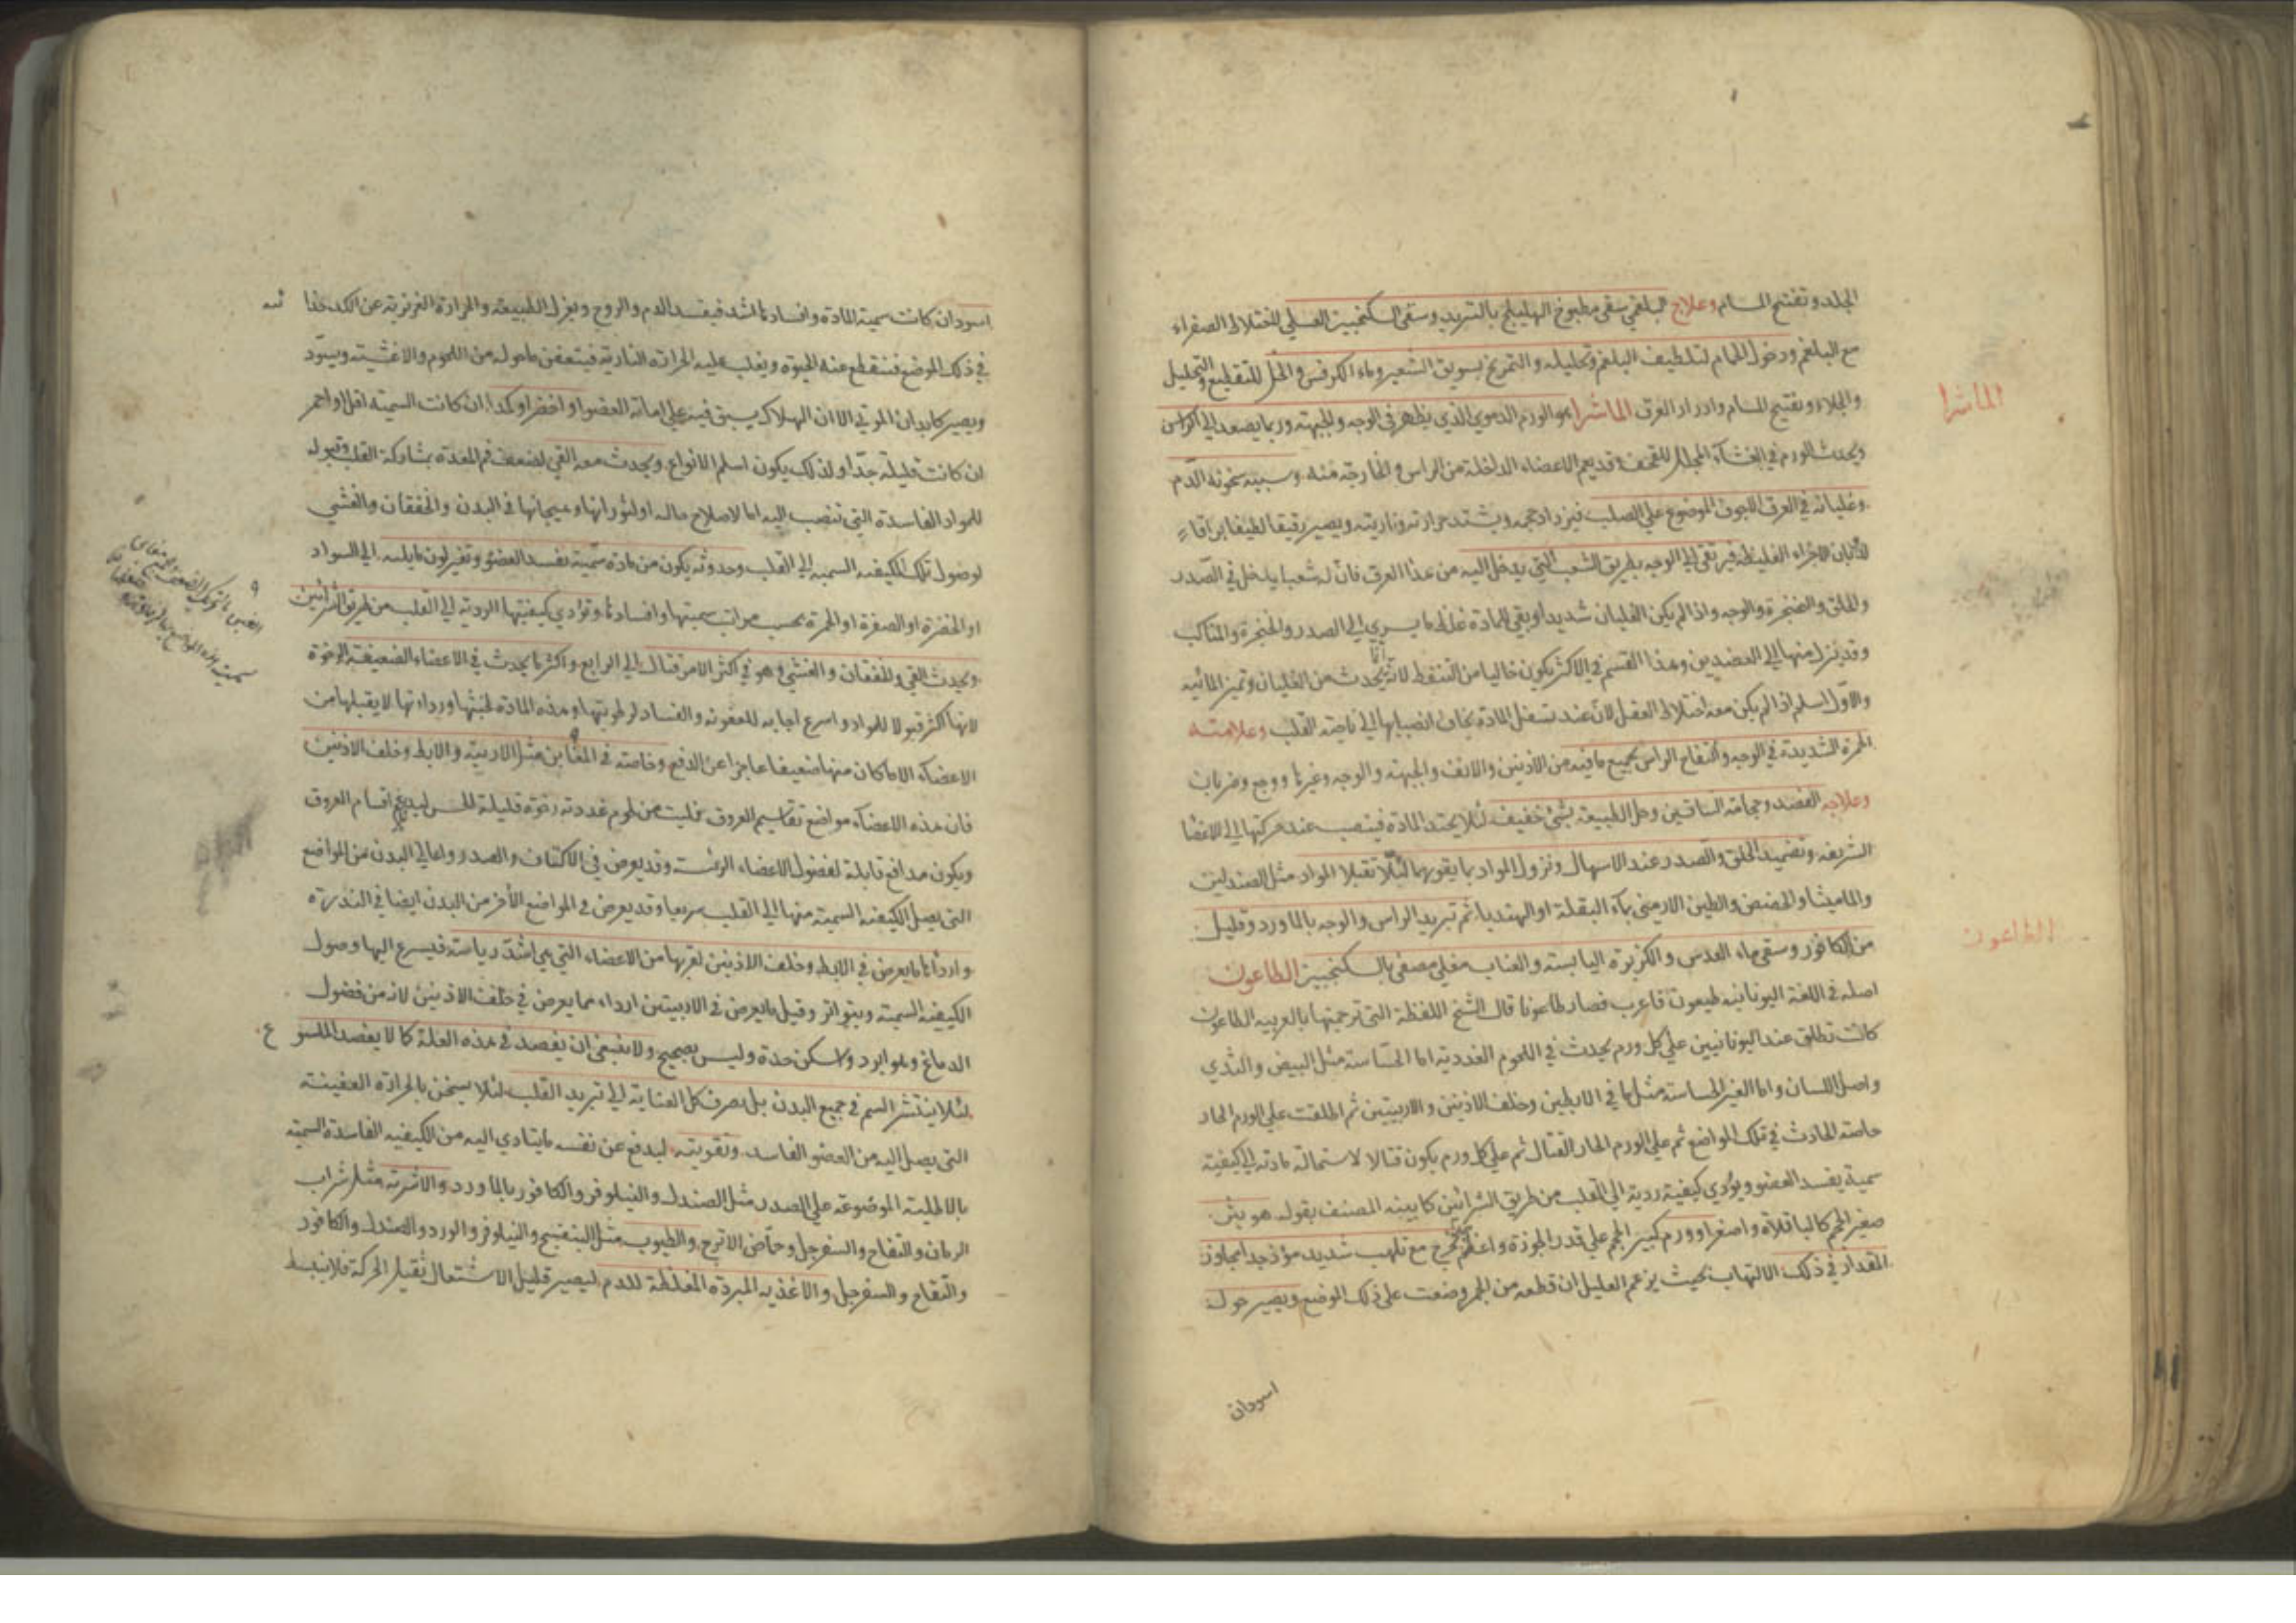 الجلد وتفتيح المسام وعلاج البلغمي سقي مطبوخ الهليلج بالتربد وسقي السكنجبين العسلي لاختلاط الصفراء
مع البلغم ودخول الحمام لتلطيف البلغم وتحليله والتمريخ بسويق الشعير وماء الكرفس والخل للتقطيع والتحليل
والجلاء وتفتيح المسام وادرار العرق الماشرا هو الورم الدموي الذي يظهر في الوجه والجبهة وربما يصعد الي الراس
ويحدث الورم في الغشاء المجلل للقحف وقد يعم الاعضاء الداخلة من الراس والخارجة منه وسببه سخونة الدم
وغليانه في العرق الاجوف الموضوع علي الصلب فيزداد حجمه ويشتد حرارته وناريته ويصير رقيقا لطيفا براقا
الاجزاء الغليظة فيرتقي الي الوجه بطريق الشعب التي يدخل اليه من هذا العرق فان له شعبا يدخل في الصدر
والحلق والحنجرة والوجه واذا لم يكن الغليان شديدا وبقي المادة غلظ ما يسري الي الصدر والحنجرة والمناكب
وقد ينزل منها الي العضدين وهذا القسم في الاكثر يكون خاليا من التنفط لانه انما يحدث من الغليان وتميز المائية
والاول اسلم اذا لم يكن معه اختلاط العقل لان عند تسفل المادة يخاف انصبابها الي ناحية القلب وعلامته
الحمرة الشديدة في الوجه وانتفاخ الراس بجميع ما فيه من الاذنين والانف والجبهة والوجه وغيرها ووجع وضربان
وعلاجه الفصد وحجامة الساقين وحل الطبيعة بشئ خفيف لئلا يحتد المادة فينصب عند حركتها الي الاعضا
الشريفة وتضميد الحلق والصدر عند الاسهال ونزول المواد بما يقويهما لئلا تقبلا المواد مثل الصندلين
والماميثا والحضض والطين الارمني بماء البقلة او الهندبا ثم تبريد الراس والوجه بالماورد وقليل
من الكافور وسقي ماء العدس والكزبرة اليابسة والعناب مغلي مصفي بالسكنجبين الطاعون
اصله في اللغة اليونانية طيعون فاعرب فصار طاعونا قال الشيخ اللفظة التي ترجمتها بالعربية الطاعون
كانت تطلق عند اليونانيين علي كل ورم يحدث في اللحوم الغددية اما الحساسة مثل البيض والثدي
واصل اللسان واما الغير الحساسة مثل ما في الابطين وخلف الاذنين والاربيتين ثم اطلقت علي الورم الحار
خاصة الحادث في تلك المواضع ثم علي الورم الحار القتال ثم علي كل ورم يكون قتالا لاستحالة مادته الي كيفية
سمية يفسد العضو ويؤدي كيفية ردية الي القلب من طريق الشرائين كما بينه المصنف بقوله هو بثر
صغير الحجم كالباقلاة واصغر او ورم كبير الحجم علي قدر الجوزة واعظم يخرج مع تلهب شديد مؤذ جدا يجاوز
المقدار في ذلك الالتهاب بحيث يزعم العليل ان قطعة من الجمر وضعت علي ذلك الموضع ويصير حوله
اسودان
الماشرا
الطاعون
اسود ان كانت سمية المادة وافسادها اشد فيفسد الدم والروح ويعزل الطبيعة والحرارة الغريزية عن
في ذلك الموضع فينقطع عنه الحيوة ويغلب عليه الحرارة النارية فيتعفن ما حوله من اللحوم والاغشية ويسود
ويصير كابدان الموتي الا ان الهلاك يسبق فيه علي اماتة العضو او اخضر او كمدا ان كانت السمية اقل او احمر
ان كانت قليلة جدا ولذلك يكون اسلم الانواع ويحدث معه القي لضعف فم المعدة بمشاركة القلب وقبوله
للمواد الفاسدة التي تنصب اليه اما لاصلاح حاله او لثورانها وهيجانها في البدن والخفقان والغشي
لوصول تلك الكيفية السمية الي القلب وحدوثه يكون من مادة سمية يفسد العضو وتغير لون ما يليه الي السواد
او الخضرة او الصفرة او الحمرة بحسب مراتب سميتها وافسادها وتؤدي كيفيتها الردية الي القلب من طريق الشرائين
ويحدث القي والخفقان والغشي وهو في اكثر الامر قتال الي الرابع واكثر ما يحدث في الاعضاء الضعيفة الرخوة
لانها اكثر قبولا للمواد واسرع اجابة للعفونة والفساد لرطوبتها وهذه المادة لخبثها ورداءتها لا يقبلها من
الاعضاء الا ما كان منها ضعيفا عاجزا عن الدفع وخاصة في المغابن مثل الاربية والابط وخلف الاذنين
فان هذه الاعضاء مواضع تقاسيم العروق ملئت من لحوم غددية رخوة قليلة الحس ليدعم اقسام العروق
ويكون مدافع قابلة لفضول الاعضاء الرئسة وقد يعرض في الاكتاف والصدر واعالي البدن من المواضع
التي يصل الكيفية السمية منها الي القلب سريعا وقد يعرض في المواضع الأخر من البدن ايضا في الندرة
واردأها ما يعرض في الابط وخلف الاذنين لقربها من الاعضاء التي هي اشد رياسة فيسرع اليها وصول
الكيفية السمية ويتواتر وقيل ما يعرض في الاربيتين اردا مما يعرض في خلف الاذنين لانه من فضول
الدماغ وهو ابرد واسكن حدة وليس بصحيح ولا ينبغي ان يفصد في هذه العلة كما لا يفصد الملسوع
لئلا ينتشر السم في جميع البدن بل يصرف كل العناية الي تبريد القلب لئلا يسخن بالحرارة العفينة
التي يصل اليه من العضو الفاسد وتقويته ليدفع عن نفسه ما يتادي اليه من الكيفية الفاسدة السمية
بالاطلية الموضوعة علي الصدر مثل الصندل والنيلوفر والكافور بالماورد والاشربة مثل شراب
الرمان والتفاح والسفرجل وحماض الاترج والطيوب مثل البنفسج والنيلوفر والورد والصندل والكافور
والتفاح والسفرجل والاغذية المبردة المغلظة للدم ليصير قليل الاشتعال ثقيل الحركة فلا ينبسط